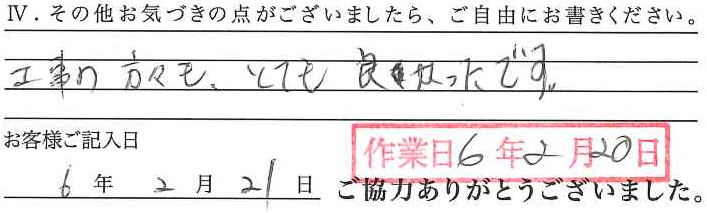 Ⅳ．その他お気づきの点がございましたら、ご自由にお書きください。
工事の方々も、とても良かったです。
お客様ご記入日
作業日6年2月20日
6年2月21日
ご協力ありがとうございました。